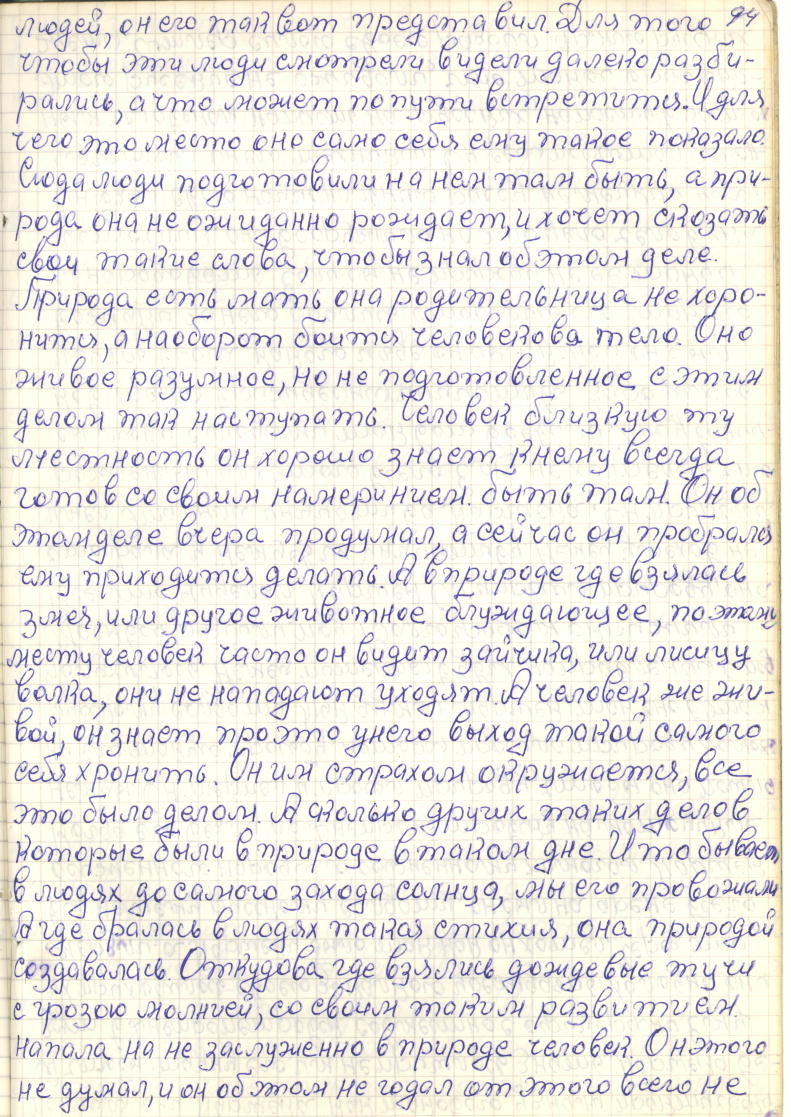 людей, он его так вот представил. Для того 94
чтобы эти люди смотрели видели далеко разби-
рались, а что может по пути встретится. И для
чего это место оно само себя ему такое показало.
Сюда люди подготовили на нем там быть, а при-
рода она не ожиданно рождает, и хочет скозать
свои такие слова, чтобы знал об этом деле.
Природа есть мать она родительница не хоро-
нится, а наоборот боится человекова тело. Оно
живое разумное, но не подготовленное с этим
делом так наступать. Человек близкую ту
местность он хорошо знает к нему всегда
готов со своим намеринием. быть там. Он об
этом деле вчера продумал, а сейчас он пробрался
ему приходится делать. А в природе где взялась
змея, или другое животное блуждающее, по этаму
месту человек часто он видит зайчика, или лисицу
волка, они не нападают уходят. А человек же жи-
вой, он знает про это у него выход такой самого
себя хронить. Он им страхом окружается, все
это было делом. А сколько других таких делов
которые были в природе в таком дне. И что бывает
в людях до самого захода солнца, мы его провожали
А где бралась в людях такая стихия, она природой
создавалась. Откудова где взялись дождевые тучи
с грозою молнией, со своим таким развитием.
напала на не заслуженно в природе человек. Он этого
не думал, и он об этом не годал от этого всего не